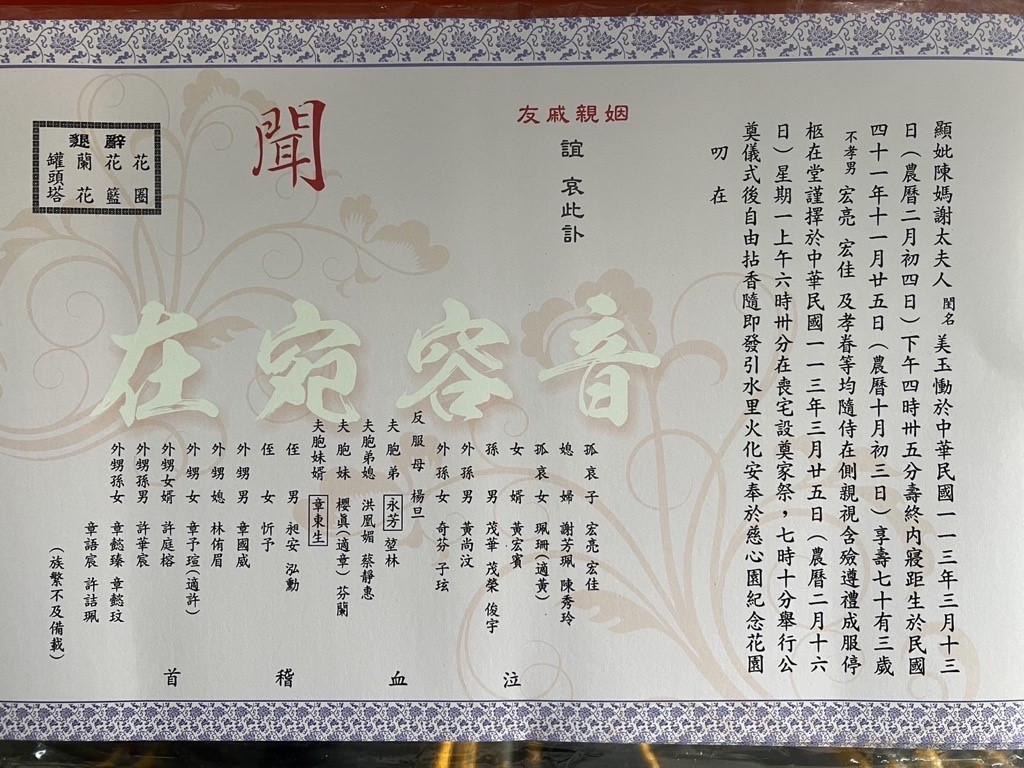 顯妣陳媽謝太夫人閨名美玉慟於中華民國一一三年三月十三
日（農曆二月初四日）下午四時卅五分壽終內寢距生於民國
四十一年十一月廿五日（農曆十月初三日）享壽七十有三歲
不孝男宏亮 宏佳 及孝眷等均隨侍在側親視含殮遵禮成服停
柩在堂謹擇於中華民國一一三年三月廿五日（農曆二月十六
日）星期一上午六時卅分在喪宅設奠家祭，七時十分舉行公
奠儀式後自由拈香隨即發引水里火化安奉於慈心園紀念花園
叨 在
姻親戚友
誼 哀此訃
聞
音容宛在
孤哀子 宏亮 宏佳
媳婦 謝芳珮 陳秀玲
孤哀女 珮珊(適黃)
女婿 黃宏賓
孫男 茂華 茂榮 俊宇
外孫男 黃尚汶
外孫女 奇芬 子玹
反服母 楊旦
夫胞弟 永芳 堃林
夫胞弟媳 洪凰媚 蔡靜惠
夫胞妹 櫻眞(適章) 芬蘭
夫胞妹婿 章東生
侄男 昶安 泓勳
侄女 忻予
外甥男 章國威
外甥媳 林侑眉
外甥女 章予瑄(適許)
外甥女婿 許庭榕
外甥孫男 許華宸
外甥孫女 章懿臻 章懿玟
章語宸 許詰珮
（族繁不及備載）
泣血稽首
懇辭
花圈
花籃
蘭花
罐頭塔